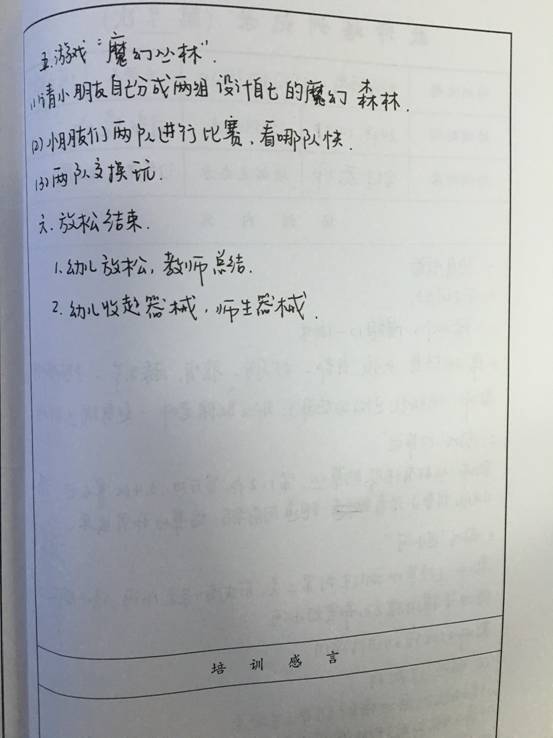 五.游戏"魔幻丛林".
(1)请小朋友自己分成两组设计自己的魔幻森林.
(2)小朋友们两队进行比赛,看哪队快.
(3)两队交换玩.
六.放松结束.
1.幼儿放松,教师总结.
2.幼儿收起器械,师生器械.
培训感言